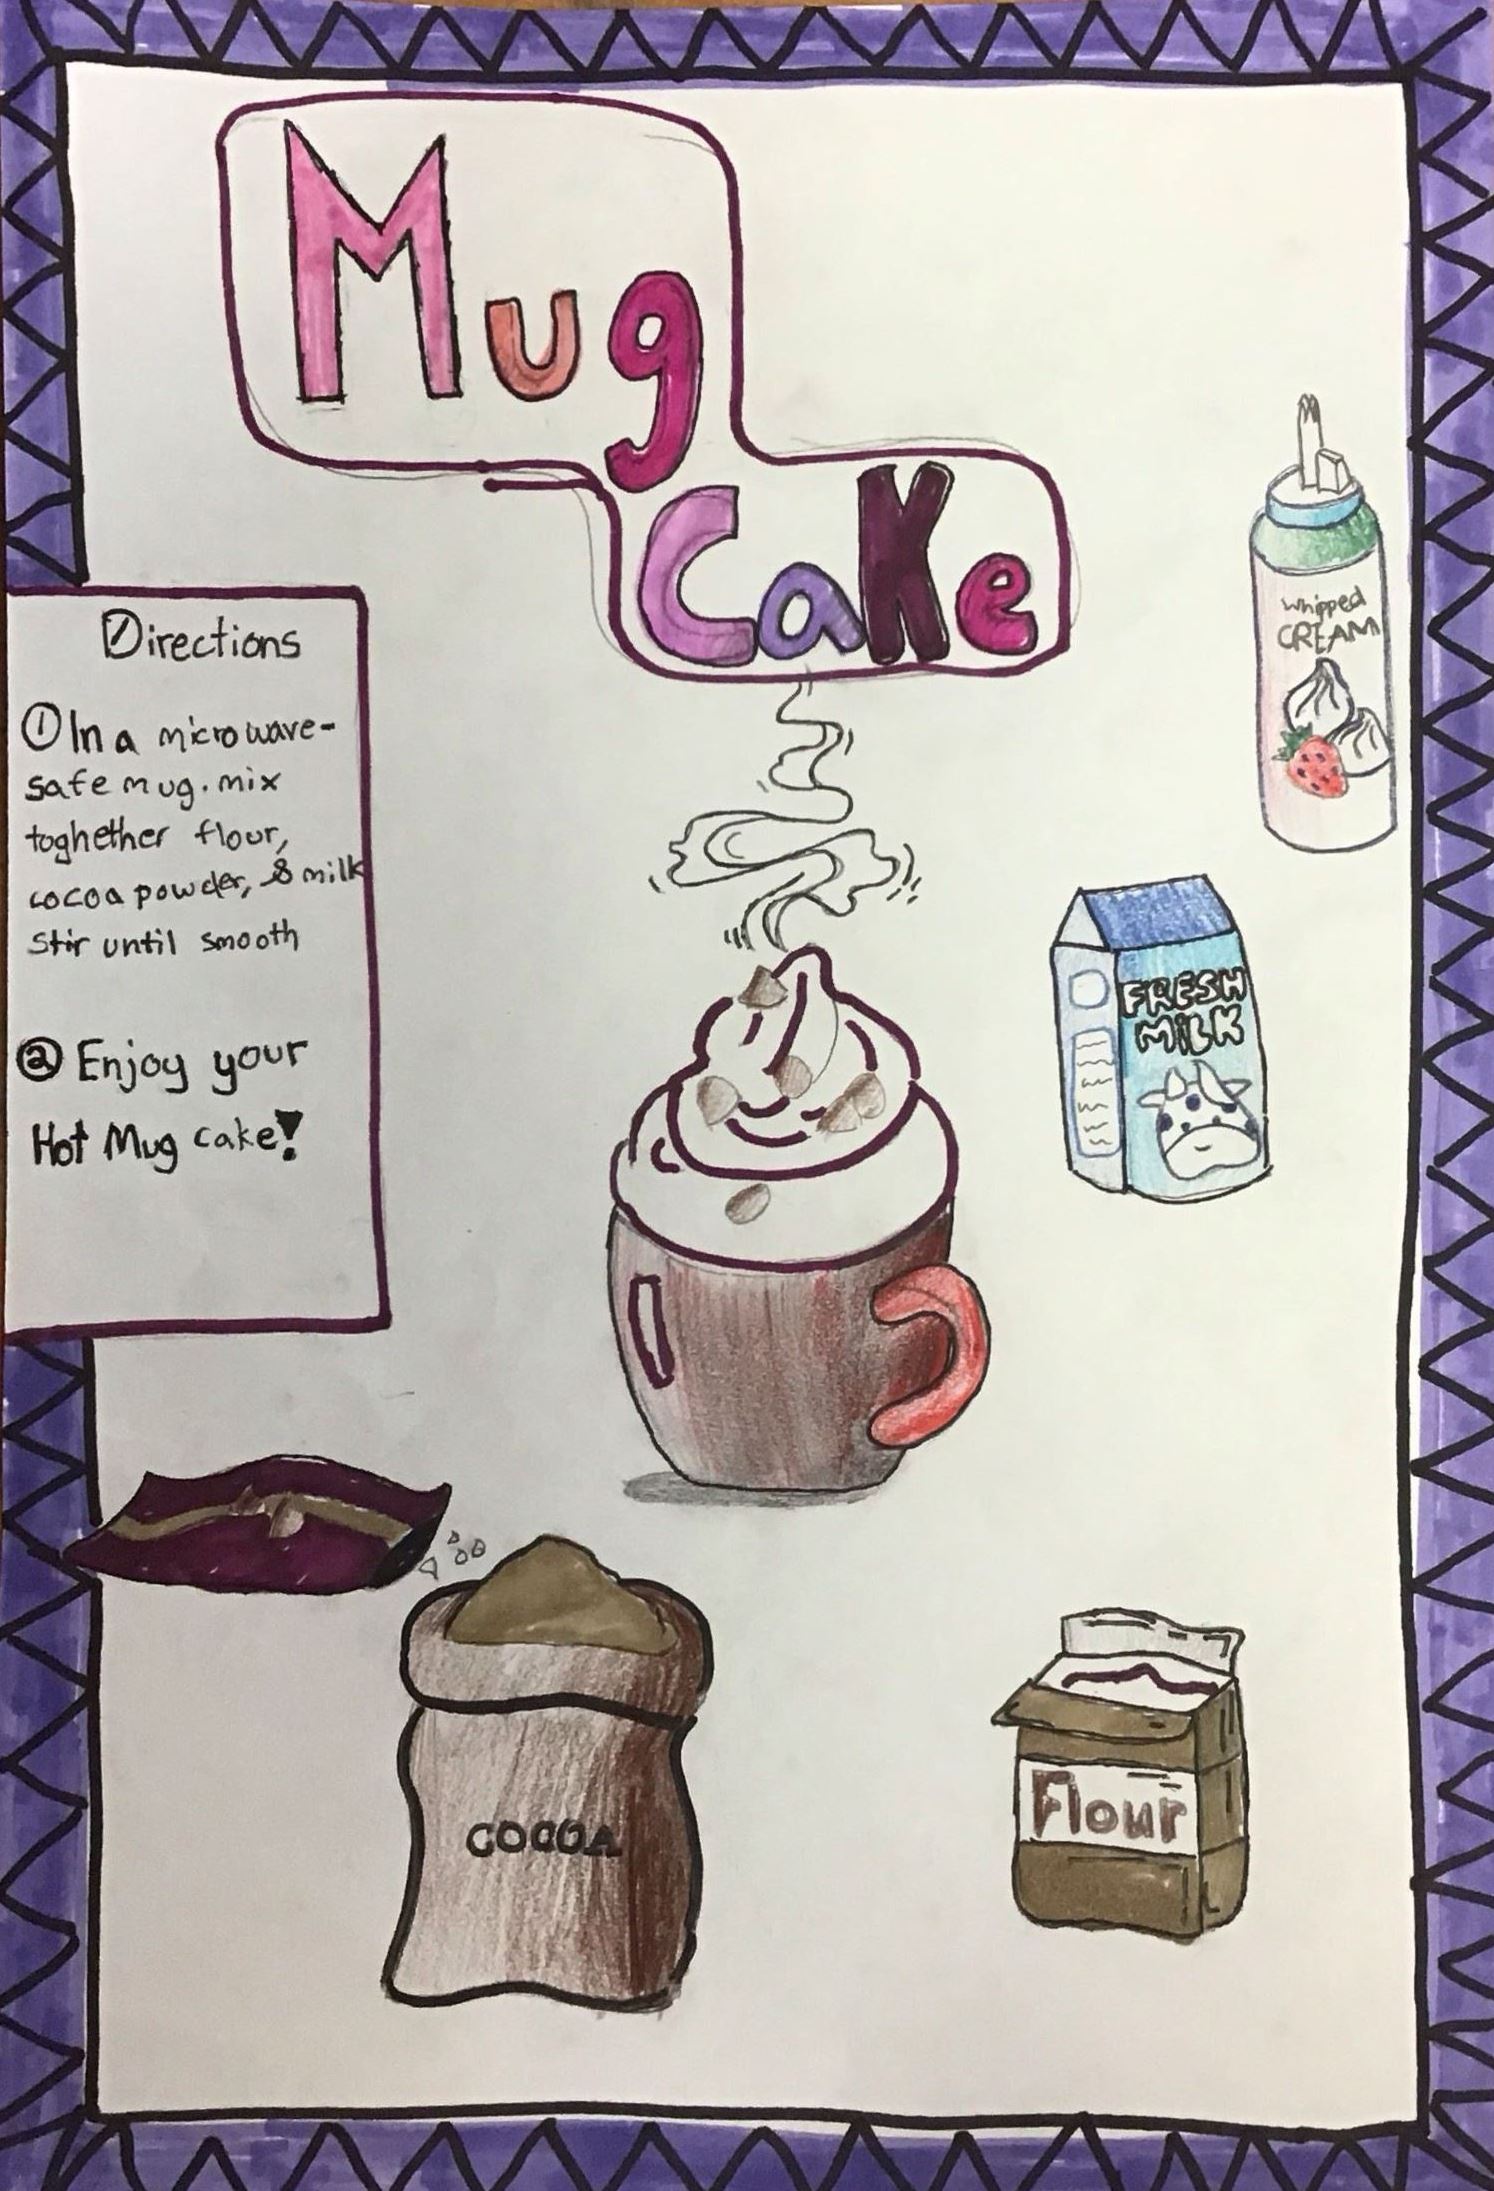 Mug
Cake
Directions
① In a microwave-
safe mug. mix
toghether flour,
cocoa powder, & milk
Stir until smooth
② Enjoy your
Hot Mug cake!
Whipped
CREAM
FRESH
MiLK
COCOA
Flour